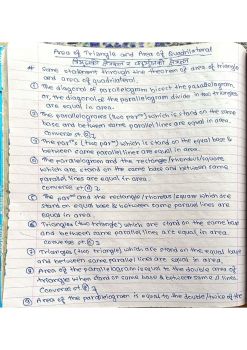 Area of Triangle and Area of Quadrilateral
त्रिभुजको क्षेत्रफल र चतुर्भुजको क्षेत्रफल
# Some statement through the theorem of area of triangle
and area of quadrilateral.
① The diagonal of parallelogram bisect the parallelogram
or, the diagonal of the parallelogram divide in two triangles
are equal in area.
② The parallelograms (two parᵐ) which is stand on the same
base and between same parallel lines are equal in area
converse st ②
③ The parᵐs (two parᵐ) which is stand on the equal base &
between same parallel lines are equal in area.
④ The parallelogram and the rectangle/rhombus/square
which are stand on the same base and between same
parallel lines are equal in area.
converse st ④
⑤ The parᵐ and the rectangle/rhombus/square which are
stand on equal base & between same parallel lines are
equal in area.
⑥ Triangles (two triangle) which are stand on the same base
and between same parallel lines are equal in area.
converse st ⑥
⑦ Triangles (two triangle) which are stand on the equal base
and between same parallel lines are equal in area.
⑧ Area of the parallelogram is equal to the double area of
triangle when stand on same base & between same || lines.
Converse st ⑧
⑨ Area of the parallelogram is equal to the double/twice of the